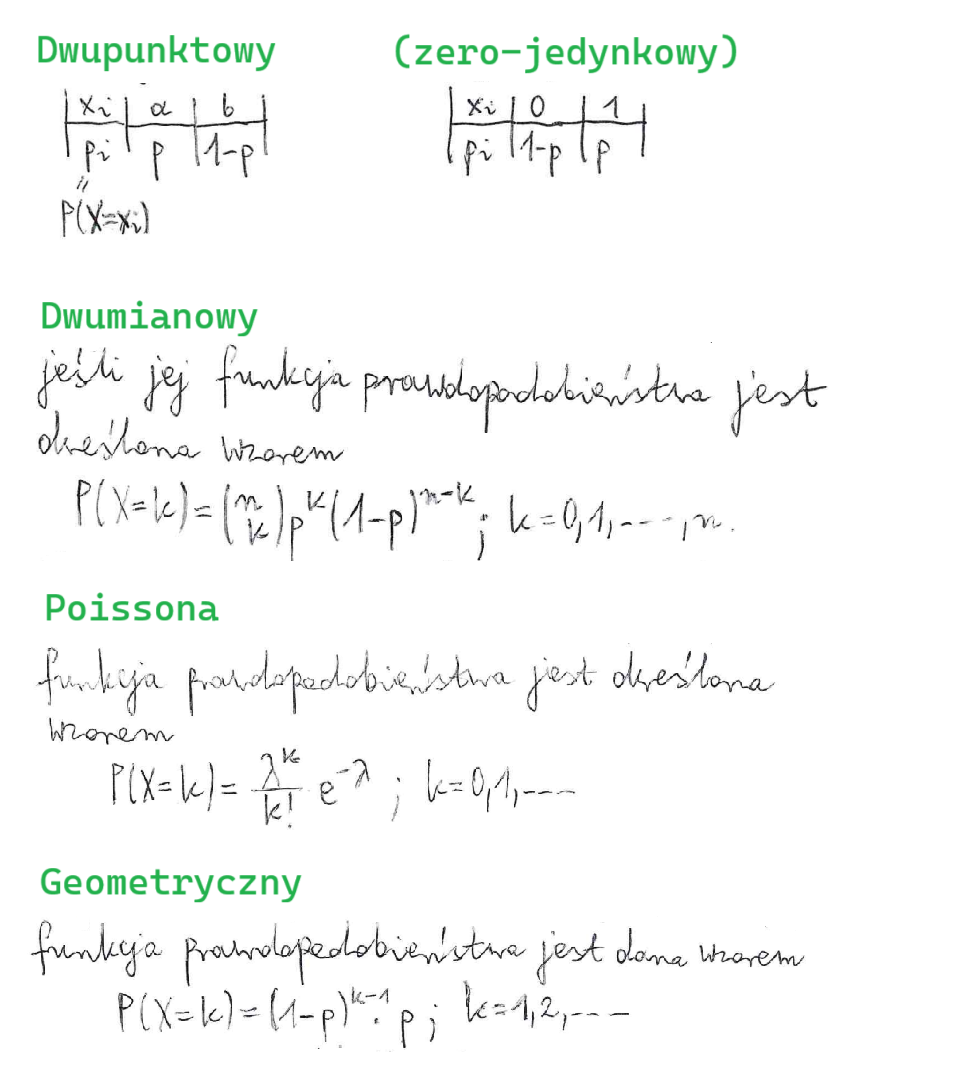 Dwupunktowy (zero-jedynkowy)
xi | a | b
pi | p | 1-p
xi | 0 | 1
pi | 1-p | p
"
P(X=xi)
Dwumianowy
jeśli jej funkcja prawdopodobieństwa jest
określona wzorem
P(X=k)=(n k)p^k(1-p)^n-k; k=0,1,----,n.
Poissona
funkcja prawdopodobieństwa jest określona
wzorem
P(X=k)= λ^k/k! e^-λ ; k=0,1,---
Geometryczny
funkcja prawdopodobieństwa jest dana wzorem
P(X=k)=(1-p)^k-1 · p; k=1,2,---